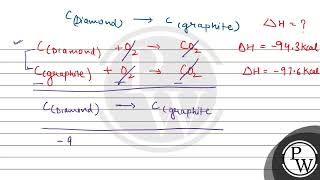 C(Diamond) → C(graphite) ΔH = ?
C(Diamond) + O2 → CO2 ΔH = -94.3 Kcal
C(graphite) + O2 → CO2 ΔH = -97.6 Kcal
C(Diamond) → C(graphite
-9
P
W